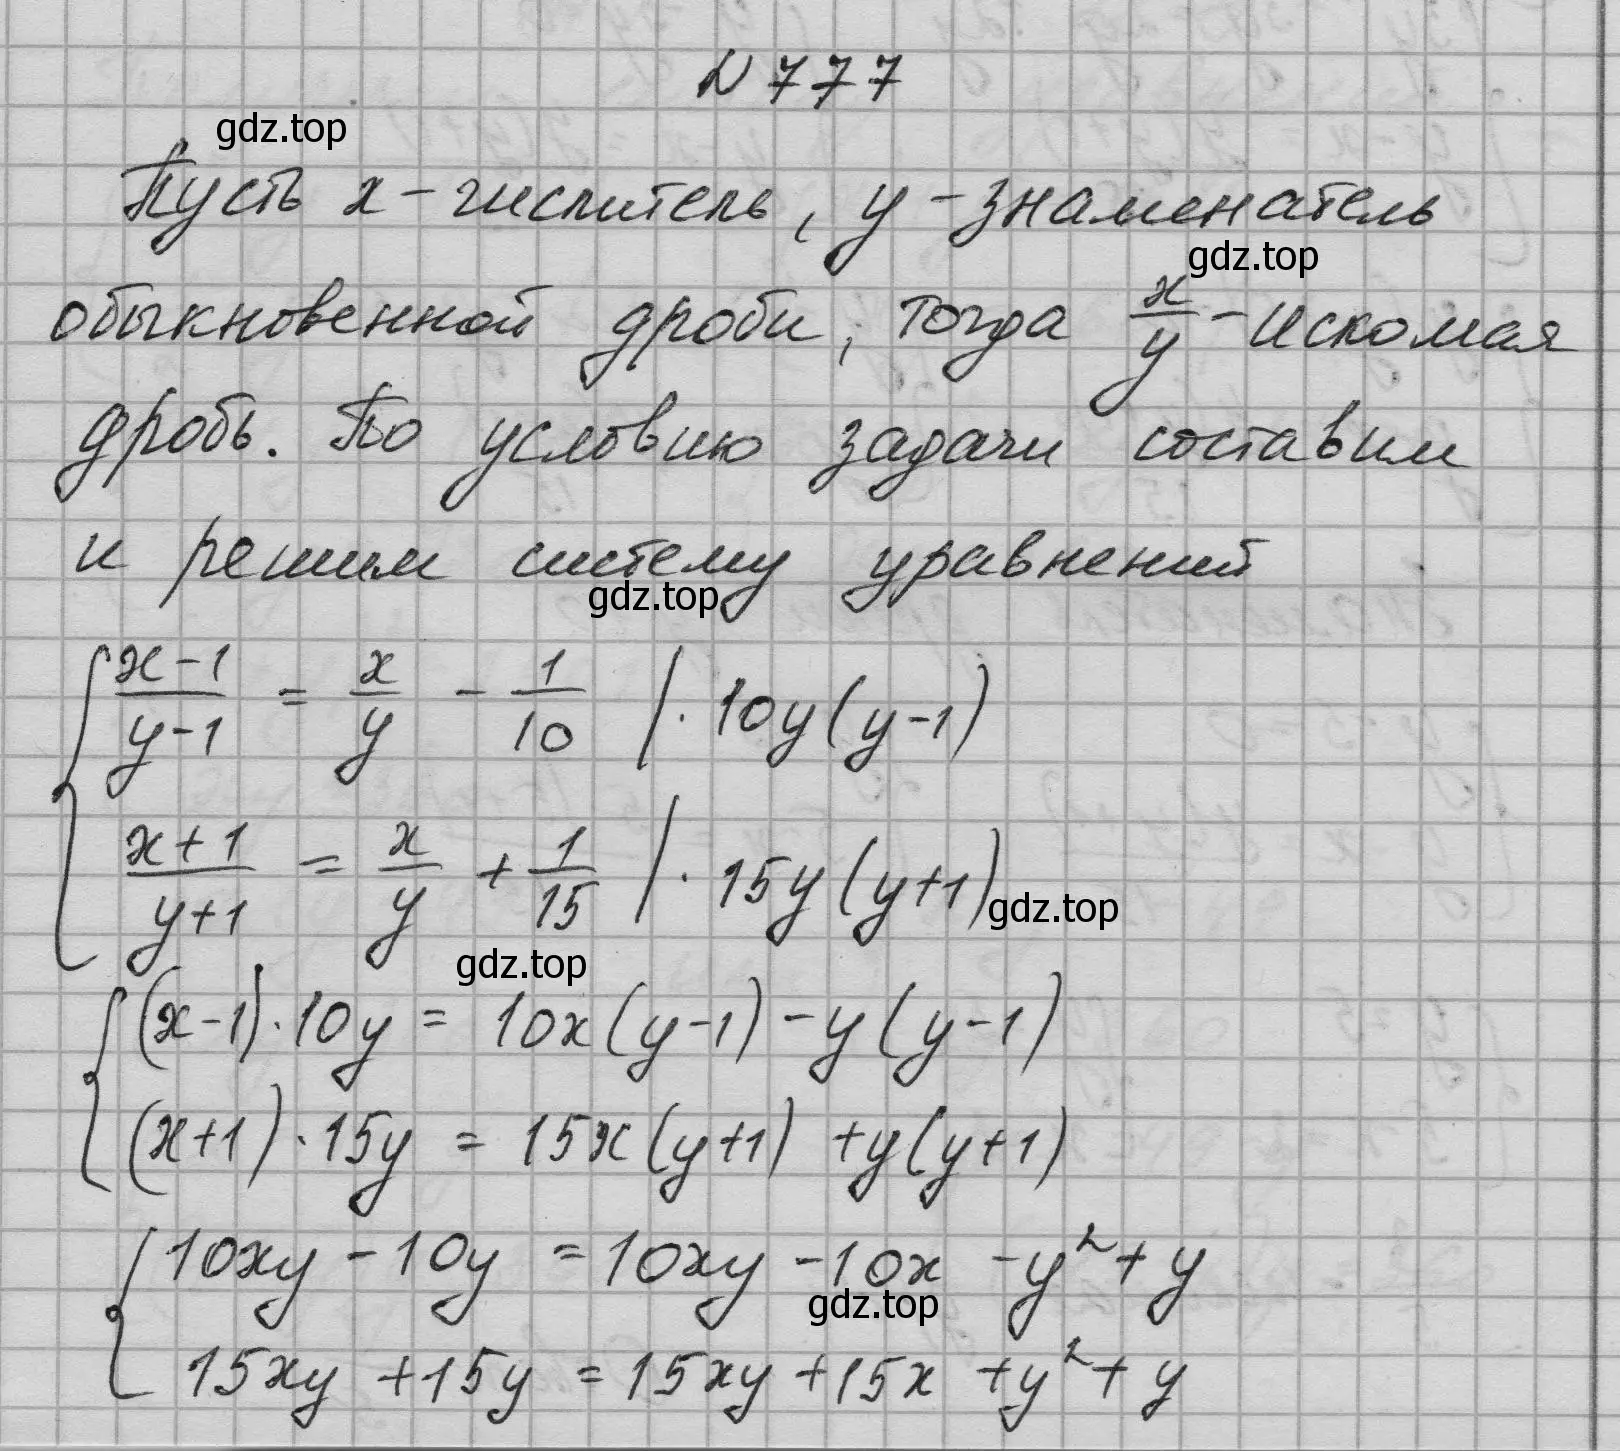 № 777
gdz.top
Пусть x - числитель, y - знаменатель
gdz.top
обыкновенной дроби, тогда x/y - искомая
дробь. По условию задачи составим
и решим систему уравнений
gdz.top
{ (x-1)/(y-1) = x/y - 1/10 | · 10y(y-1)
(x+1)/(y+1) = x/y + 1/15 | · 15y(y+1)
gdz.top
gdz.top
{ (x-1)·10y = 10x(y-1) - y(y-1)
(x+1)·15y = 15x(y+1) + y(y+1)
{ 10xy - 10y = 10xy - 10x - y² + y
gdz.top
15xy + 15y = 15xy + 15x + y² + y